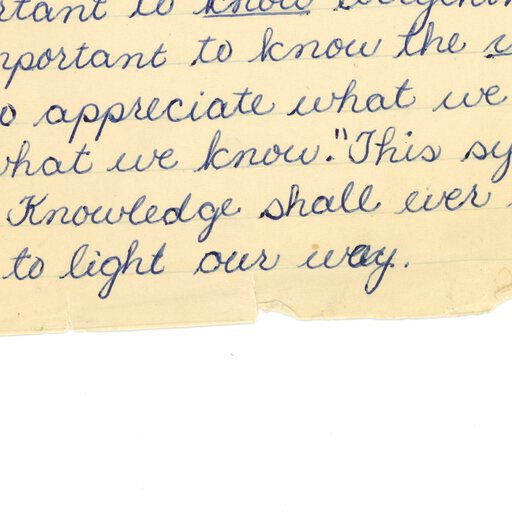 rtant to know everythin
mportant to know the v
o appreciate what we
what we know." This sy
Knowledge shall ever
to light our way.